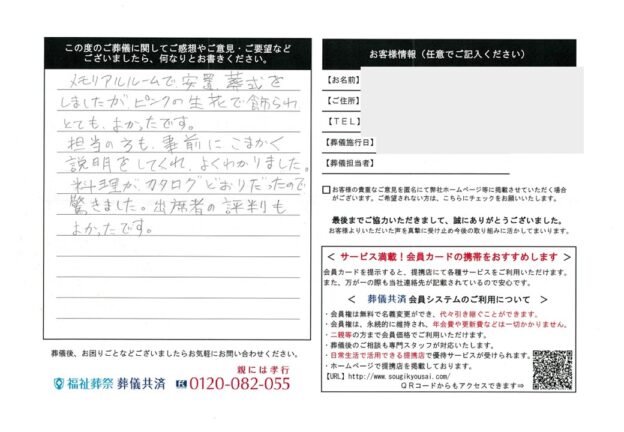 この度のご葬儀に関してご感想やご意見・ご要望など
ございましたら、何なりとお書きください。
メモリアルルームで、安置、葬式を
しましたが、ピンクの生花で飾られ
とても、よかったです。
担当の方も、事前に こまかく
説明をしてくれ、よくわかりました。
料理が、カタログどおりだったので
驚きました。出席者の評判も
よかったです。
葬儀後、お困りごとなどございましたらお気軽にお問い合わせください。
親には孝行
福祉葬祭 葬儀共済 0120-082-055
お客様情報（任意でご記入ください）
【お名前】
【ご住所】
【ＴＥＬ】
【葬儀施行日】
【葬儀担当者】
お客様の貴重なご意見を匿名にて弊社ホームページ等に掲載させていただく場合
がございます。ご希望されない方は、こちらにチェックをお願いいたします。
最後までご協力いただきまして、誠にありがとうございました。
お客様よりいただいた声を真摯に受け止め今後の取り組みに活かしてまいります。
＜ サービス満載！会員カードの携帯をおすすめします ＞
会員カードを提示すると、提携店にて各種サービスをご利用いただけます。
また、万が一の際も当社連絡先が記載されているので安心です。
＜ 葬儀共済 会員システムのご利用について ＞
・会員権は無料で名義変更ができ、代々引き継ぐことができます。
・会員権は、永続的に維持され、年会費や更新費などは一切かかりません。
・二親等の方まで会員価格でご利用いただけます。
・葬儀後のご相談も専門スタッフが対応いたします。
・日常生活で活用できる提携店で優待サービスが受けられます。
・ホームページで提携店を掲載しております。
【URL】http://www.sougikyousai.com/
ＱＲコードからもアクセスできます⇒